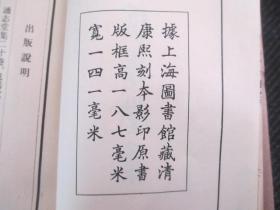 據上海圖書館藏清
康熙刻本影印原書
版框高一八七毫米
寬一四一毫米
出版說明
通志堂集二十卷